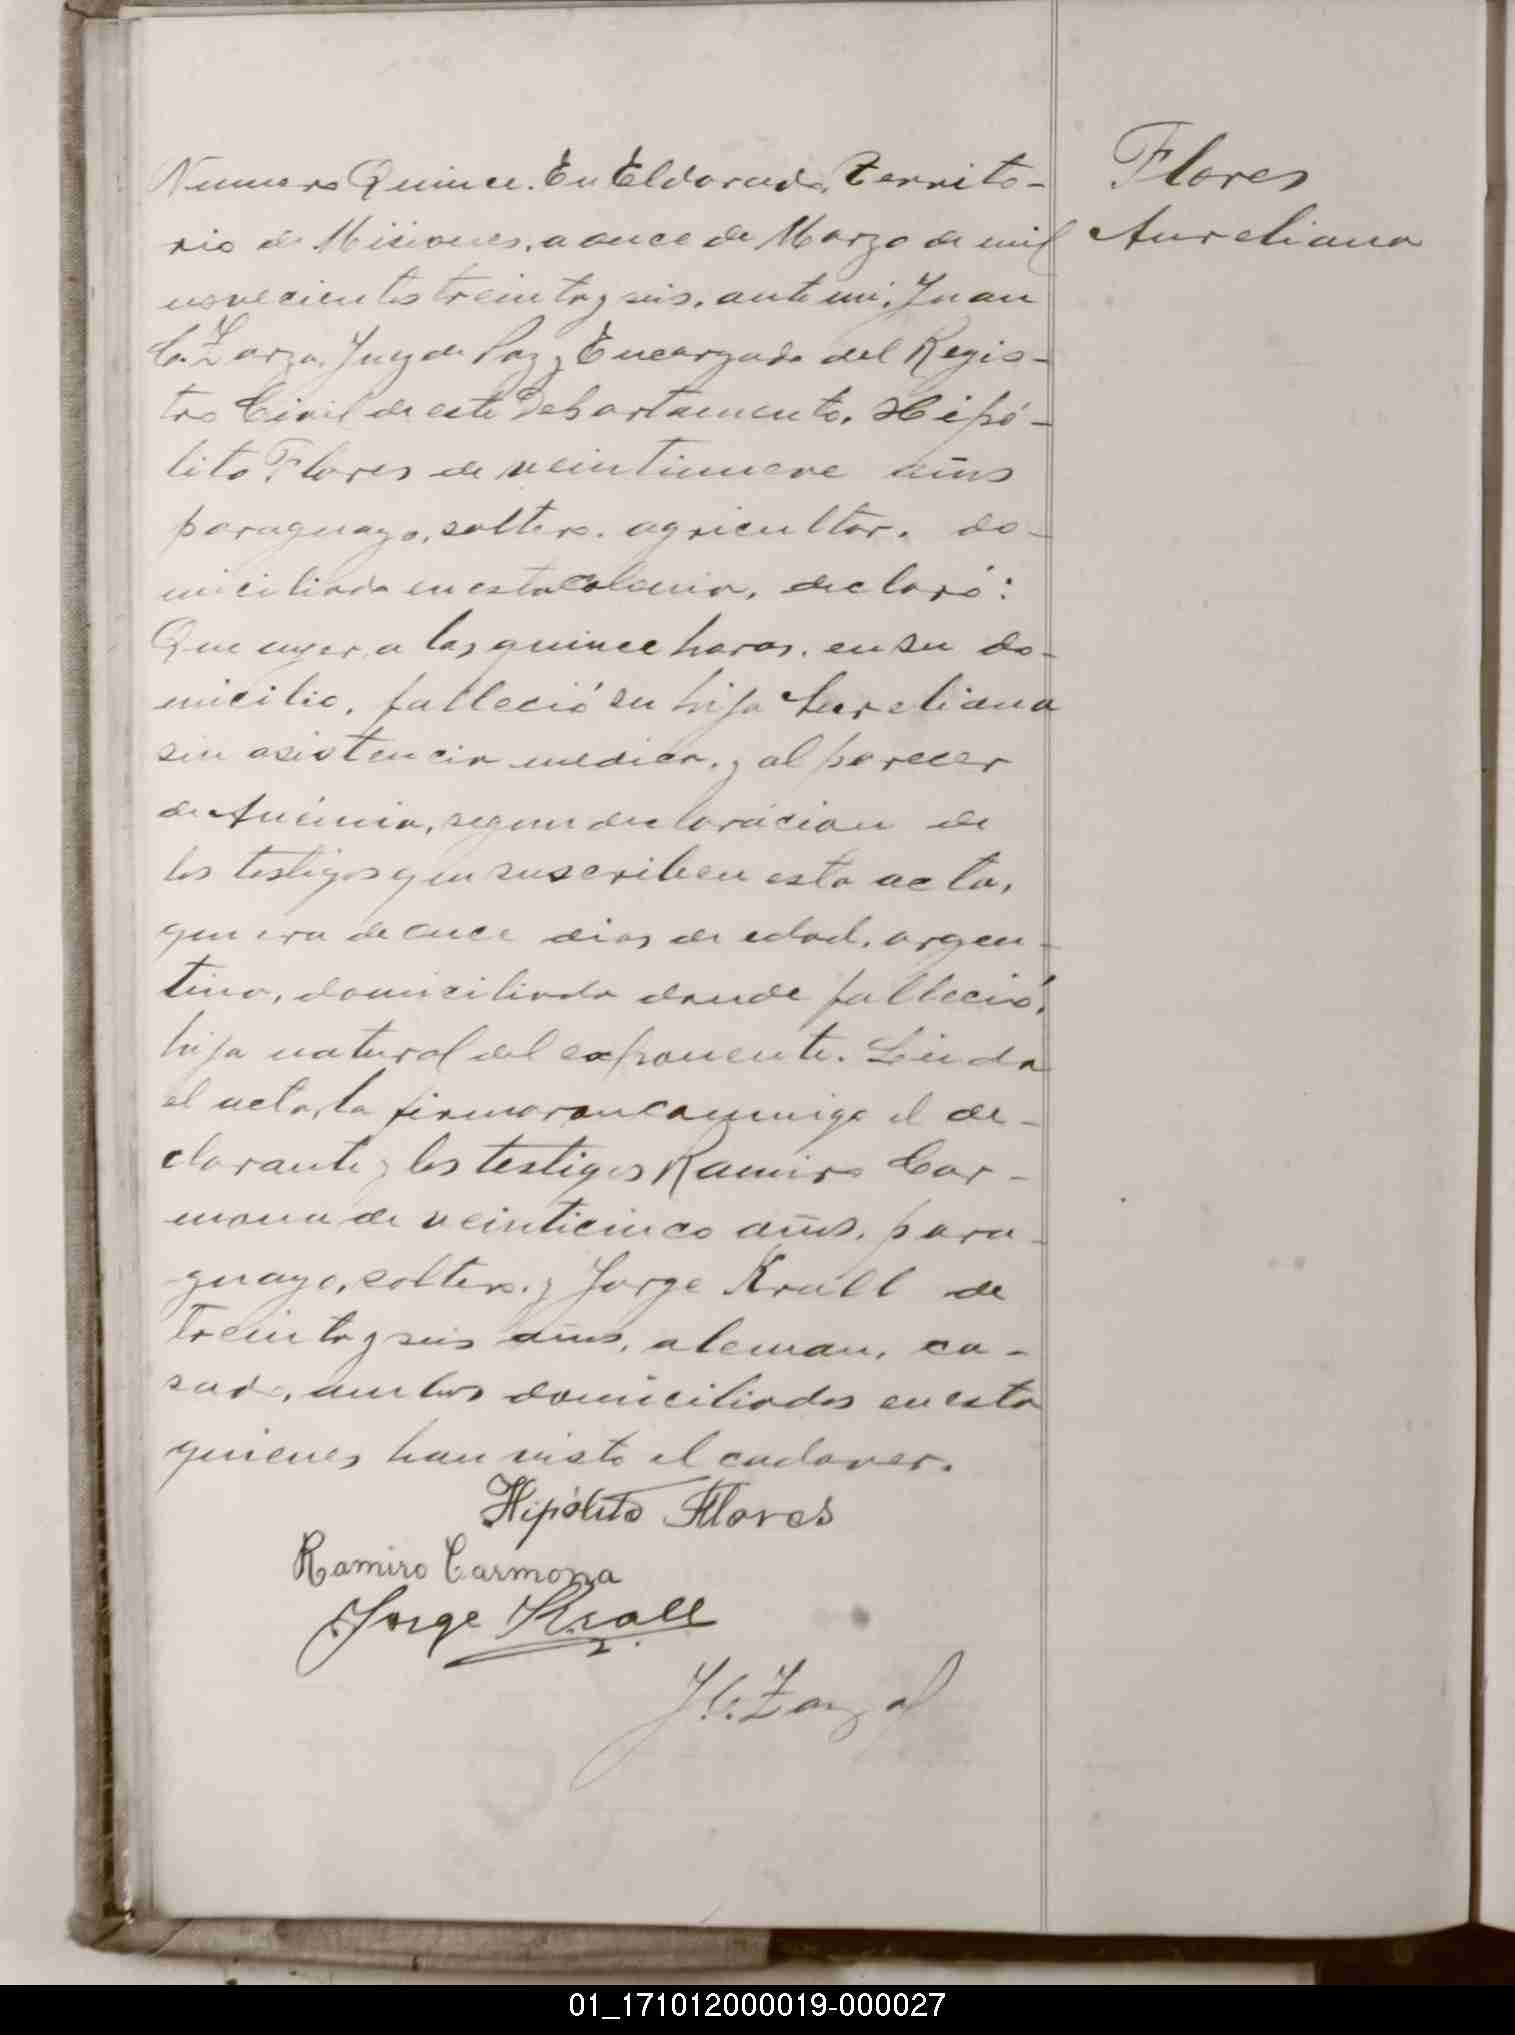 Numero Quince. En Eldorado, Territo-
rio de Misiones, a once de Marzo de mil
novecientos treinta y seis, ante mi, Juan
C. Zarza, Juez de Paz y Encargado del Regis-
tro Civil de este Departamento, Hipó-
lito Flores de veintinueve años
paraguayo, soltero, agricultor, do-
miciliado en esta Colonia, declaró:
Que ayer, a las quince horas, en su do-
micilio, falleció su hija Aureliana
sin asistencia medica, y al parecer
de Anémia, segun declaración de
los testigos que suscriben esta acta,
que era de once dias de edad, argen-
tina, domiciliada donde falleció,
hija natural del exponente. Leida
el acta, la firmaron conmigo el de-
clarante y los testigos Ramiro Car-
mona de veinticinco años, para-
guayo, soltero, y Jorge Krall de
treinta y seis años, aleman, ca-
sado, ambos domiciliados en esta
quienes han visto el cadaver.
Hipólito Flores
Ramiro Carmona
Jorge Krall
J. C. Zarza
Flores
Aureliana
01_171012000019-000027